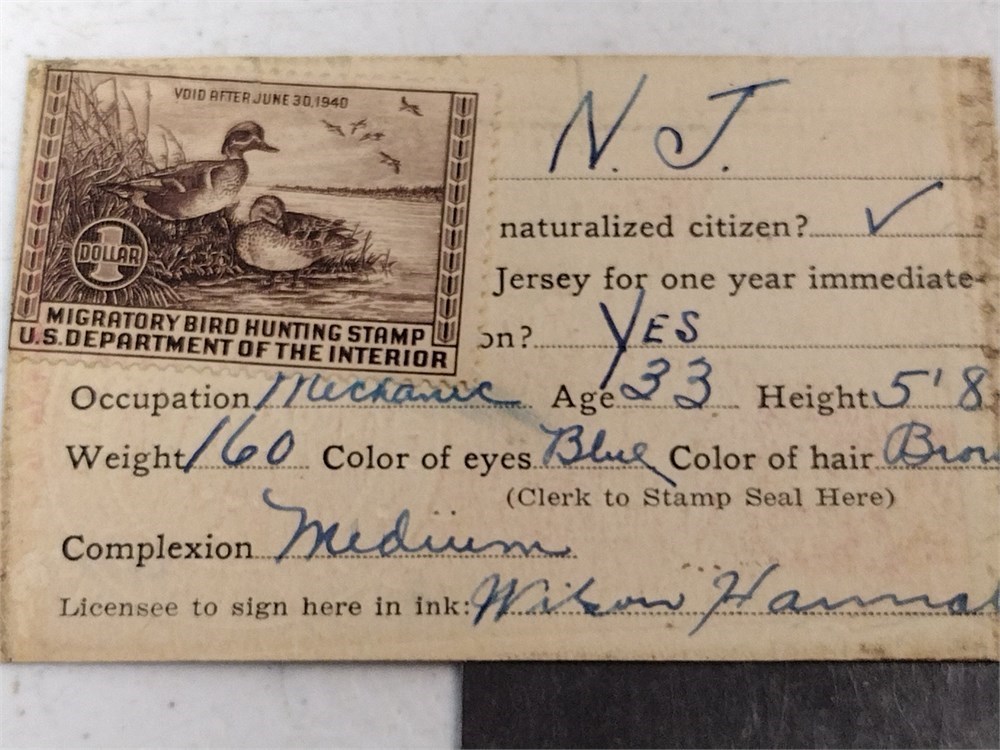 VOID AFTER JUNE 30, 1940
1 DOLLAR
MIGRATORY BIRD HUNTING STAMP
U.S. DEPARTMENT OF THE INTERIOR
N. J.
naturalized citizen? ✓
Jersey for one year immediate-
on? YES
Occupation Mechanic Age 33 Height 5'8
Weight 160 Color of eyes Blue Color of hair Brow
(Clerk to Stamp Seal Here)
Complexion Medium
Licensee to sign here in ink: Wilson Hanna